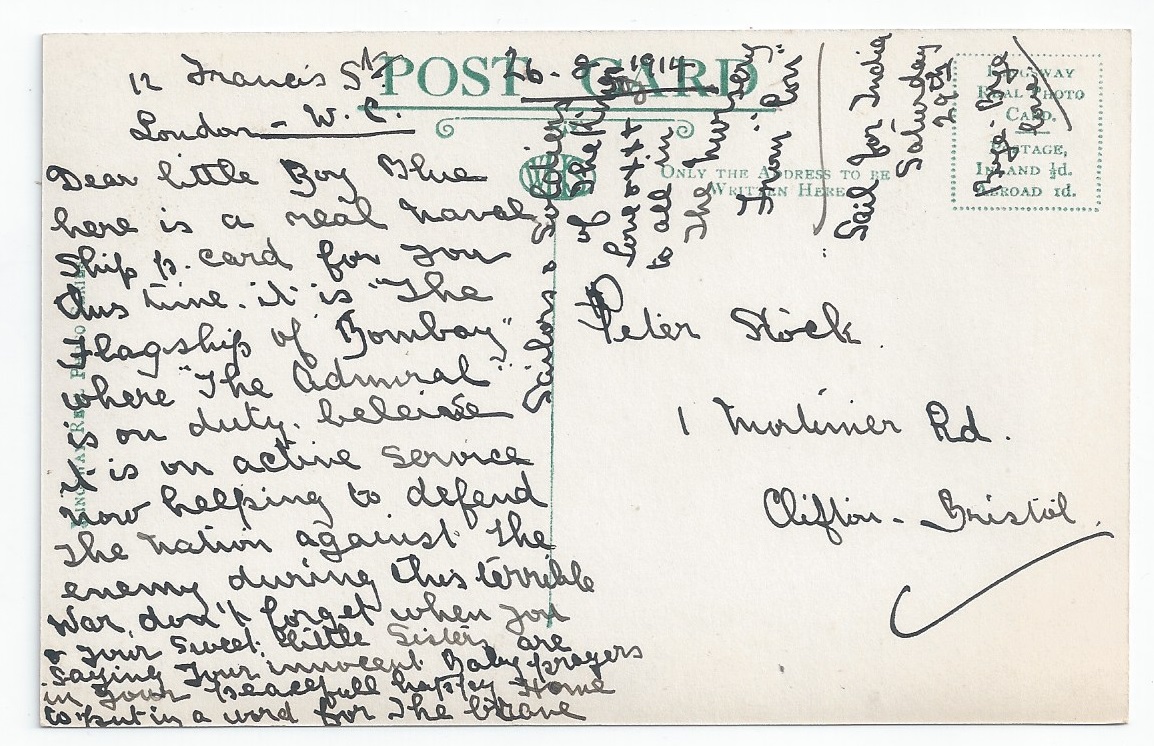 POST CARD
12 Francis St
26-8-1914
London - W.C.
Dear little Boy Blue
here is a real naval
ship p. card for you
this time. it is "The
flagship of Bombay"
where "The Admiral"
is on duty. beleive
it is on active service
now helping to defend
the nation against the
enemy during this terrible
War. don't forget when you
& your sweet little Sisters are
saying your innocent Baby prayers
in your peacefull happy Home
to put in a word for the brave
Sailors & Soldiers
of the King
love xxx
to all in
The Nursery
from "Lou"
Sail for India
Saturday
29th
KINGSWAY
REAL PHOTO
CARD.
POSTAGE,
INLAND ½d.
ABROAD 1d.
ONLY THE ADDRESS TO BE
WRITTEN HERE.
KINGSWAY REAL PHOTO SERIES
Peter Stock
1 Mortimer Rd.
Clifton - Bristol.